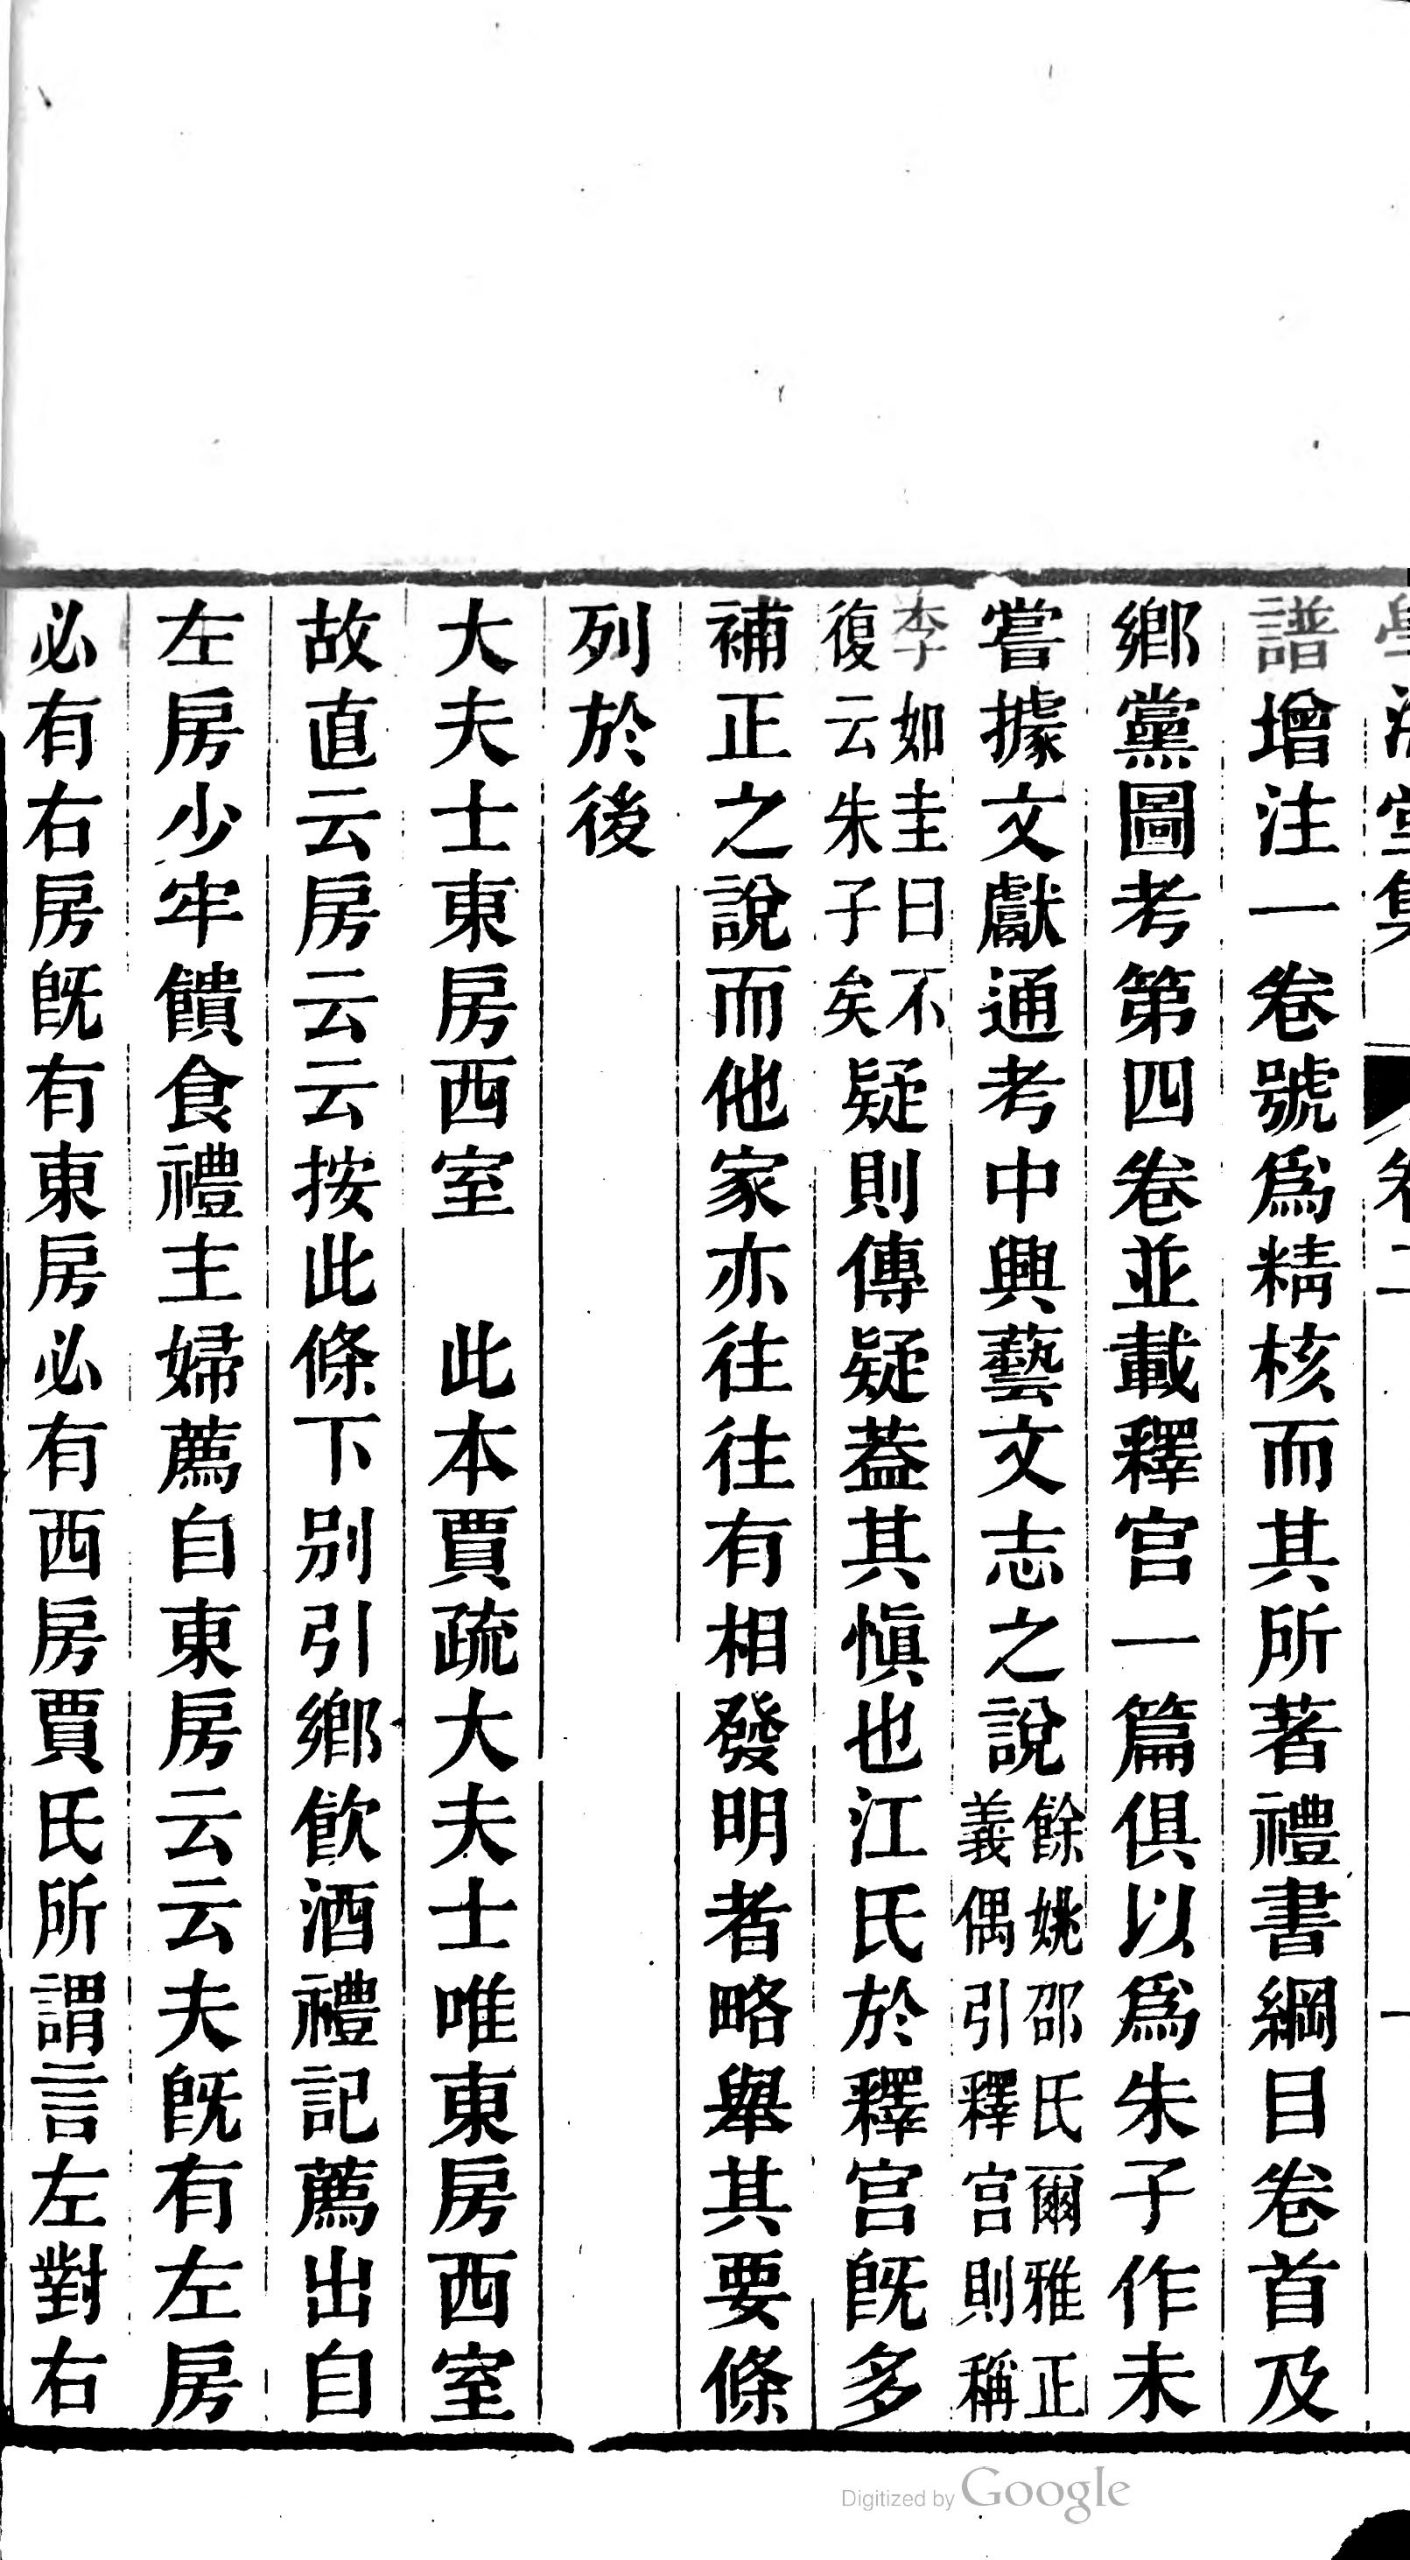 譜增注一卷號爲精核而其所著禮書綱目卷首及
鄉黨圖考第四卷並載釋宫一篇俱以爲朱子作未
嘗據文獻通考中興藝文志之說餘姚邵氏爾雅正義偶引釋宫則稱
李如圭曰不復云朱子矣疑則傳疑葢其愼也江氏於釋宫旣多
補正之說而他家亦往往有相發明者略舉其要條
列於後
大夫士東房西室　此本賈疏大夫士唯東房西室
故直云房云云按此條下別引鄉飮酒禮記薦出自
左房少牢饋食禮主婦薦自東房云云夫旣有左房
必有右房旣有東房必有西房賈氏所謂言左對右
Digitized by Google